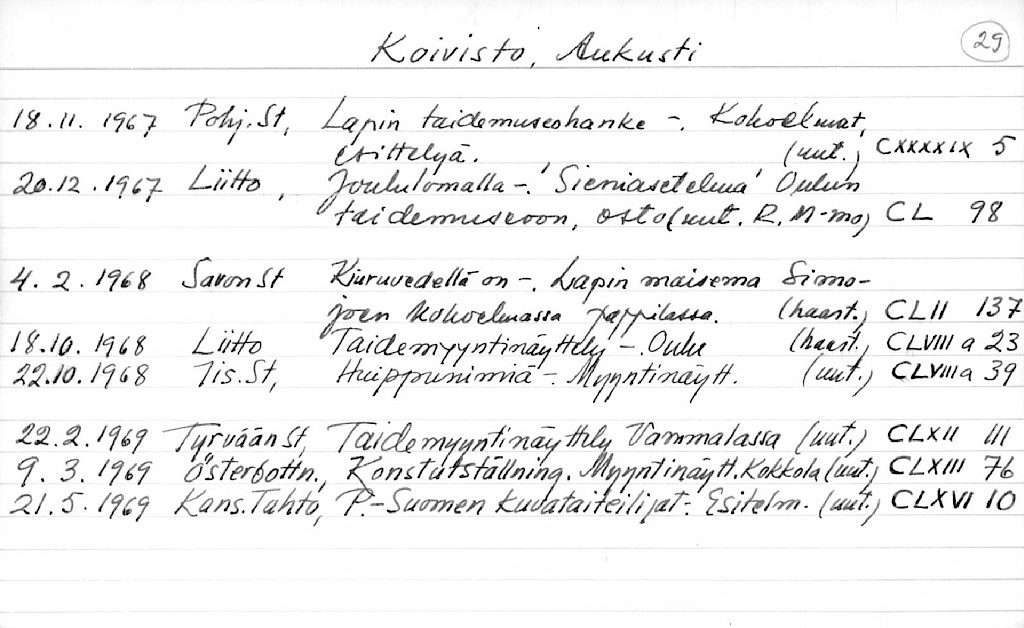 Koivisto, Aukusti
29
18.11.1967 Pohj. St, Lapin taidemuseohanke -. Kokoelmat,
esittelyä. (uut.) CXXXXIX 5
20.12.1967 Liitto, Joululomalla -. 'Sieniasetelma' Oulun
taidemuseoon, osto (uut. R. M-mo) CL 98
4.2.1968 Savon St Kiuruvedellä on -. Lapin maisema Simo-
joen kokoelmassa pappilassa. (haast.) CLII 137
18.10.1968 Liitto Taidemyyntinäyttely -. Oulu (haast.) CLVIII a 23
22.10.1968 Iis. St, Huippunimiä -. Myyntinäytt. (uut.) CLVIII a 39
22.2.1969 Tyrvään St, Taidemyyntinäyttely Vammalassa (uut.) CLXII 111
9.3.1969 Österbottn., Konstutställning. Myyntinäytt. Kokkola (uut.) CLXIII 76
21.5.1969 Kans. Tahto, P.-Suomen kuvataiteilijat -. Esitelm. (uut.) CLXVI 10